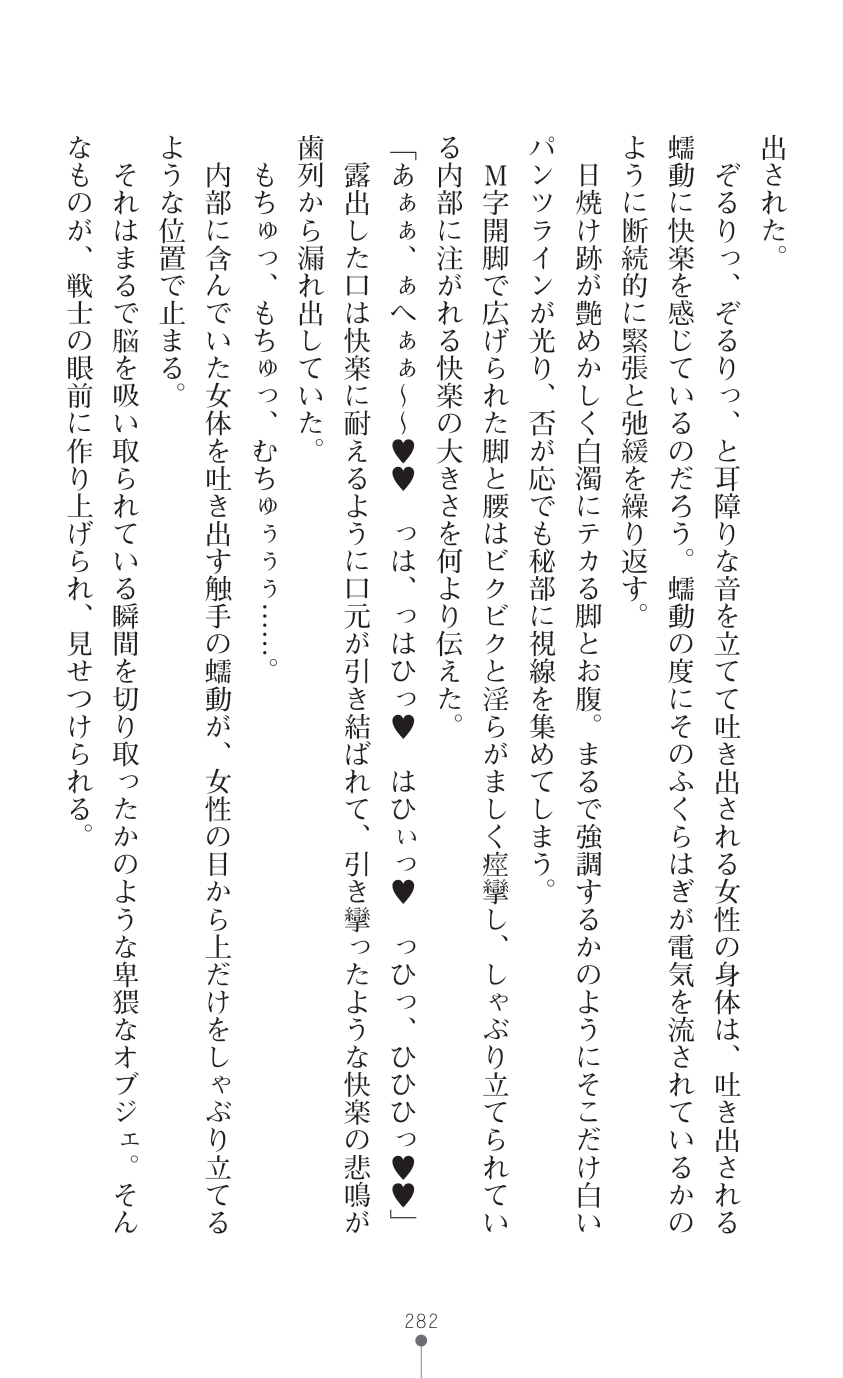 出された。
　ぞるりっ、ぞるりっ、と耳障りな音を立てて吐き出される女性の身体は、吐き出される
蠕動に快楽を感じているのだろう。蠕動の度にそのふくらはぎが電気を流されているかの
ように断続的に緊張と弛緩を繰り返す。
　日焼け跡が艶めかしく白濁にテカる脚とお腹。まるで強調するかのようにそこだけ白い
パンツラインが光り、否が応でも秘部に視線を集めてしまう。
　Ｍ字開脚で広げられた脚と腰はビクビクと淫らがましく痙攣し、しゃぶり立てられてい
る内部に注がれる快楽の大きさを何より伝えた。
「あぁぁ、ぁへぁぁ〜〜♥♥　っは、っはひっ♥　はひぃっ♥　っひっ、ひひひっ♥♥」
　露出した口は快楽に耐えるように口元が引き結ばれて、引き攣ったような快楽の悲鳴が
歯列から漏れ出していた。
　もちゅっ、もちゅっ、むちゅぅぅぅ……。
　内部に含んでいた女体を吐き出す触手の蠕動が、女性の目から上だけをしゃぶり立てる
ような位置で止まる。
　それはまるで脳を吸い取られている瞬間を切り取ったかのような卑猥なオブジェ。そん
なものが、戦士の眼前に作り上げられ、見せつけられる。
282